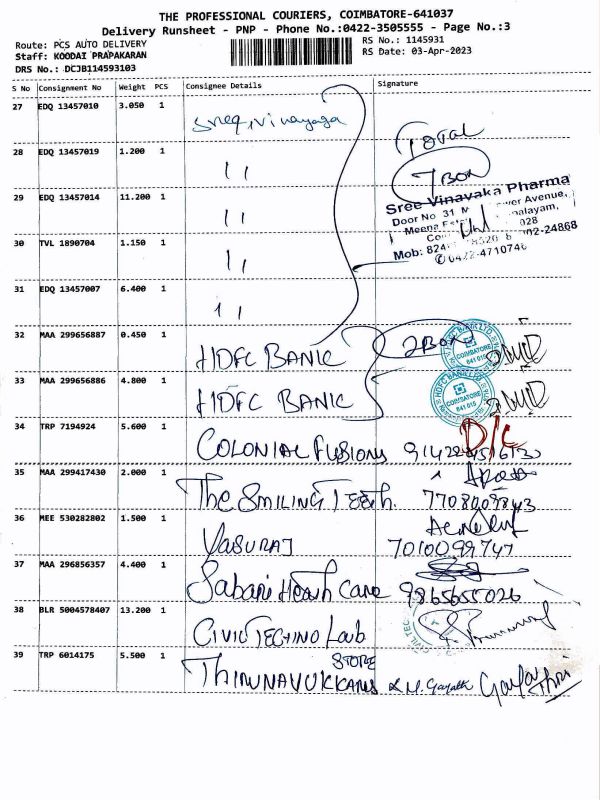 THE PROFESSIONAL COURIERS, COIMBATORE-641037
Delivery Runsheet - PNP - Phone No.:0422-3505555 - Page No.:3
Route: PCS AUTO DELIVERY
RS No.: 1145931
Staff: KOODAI PRAPAKARAN
RS Date: 03-Apr-2023
DRS No.: DCJB114593103
S No Consignment No Weight PCS Consignee Details Signature
27 EDQ 13457010 3.050 1 Sree Vinayaga
Total
28 EDQ 13457019 1.200 1 11
7 Box
Sree Vinayaka Pharma
29 EDQ 13457014 11.200 1 11
Door No 31 wer Avenue,
Meena nalayam,
30 TVL 1890704 1.150 1 11
028
Mob: 824 02-24868
0422-4710746
31 EDQ 13457007 6.400 1 11
32 MAA 299656887 0.450 1 HDFC BANK 2 Box
HDFC BANK LTD
COIMBATORE
641 015
33 MAA 299656886 4.800 1 HDFC BANK
HDFC BANK LTD
COIMBATORE
641 015
34 TRP 7194924 5.600 1 COLONIAL Fusions D/C
35 MAA 299417430 2.000 1 The SMILING TEETH. 7708009843
36 MEE 530282802 1.500 1 YASURAJ 7010099747
37 MAA 296856357 4.400 1 Sabari Health Care 9865655026
38 BLR 5004578407 13.200 1 CIVIC TECHNO Lab
CIVIL TEC
39 TRP 6014175 5.500 1 THIRUNAVUKKARASU STORE